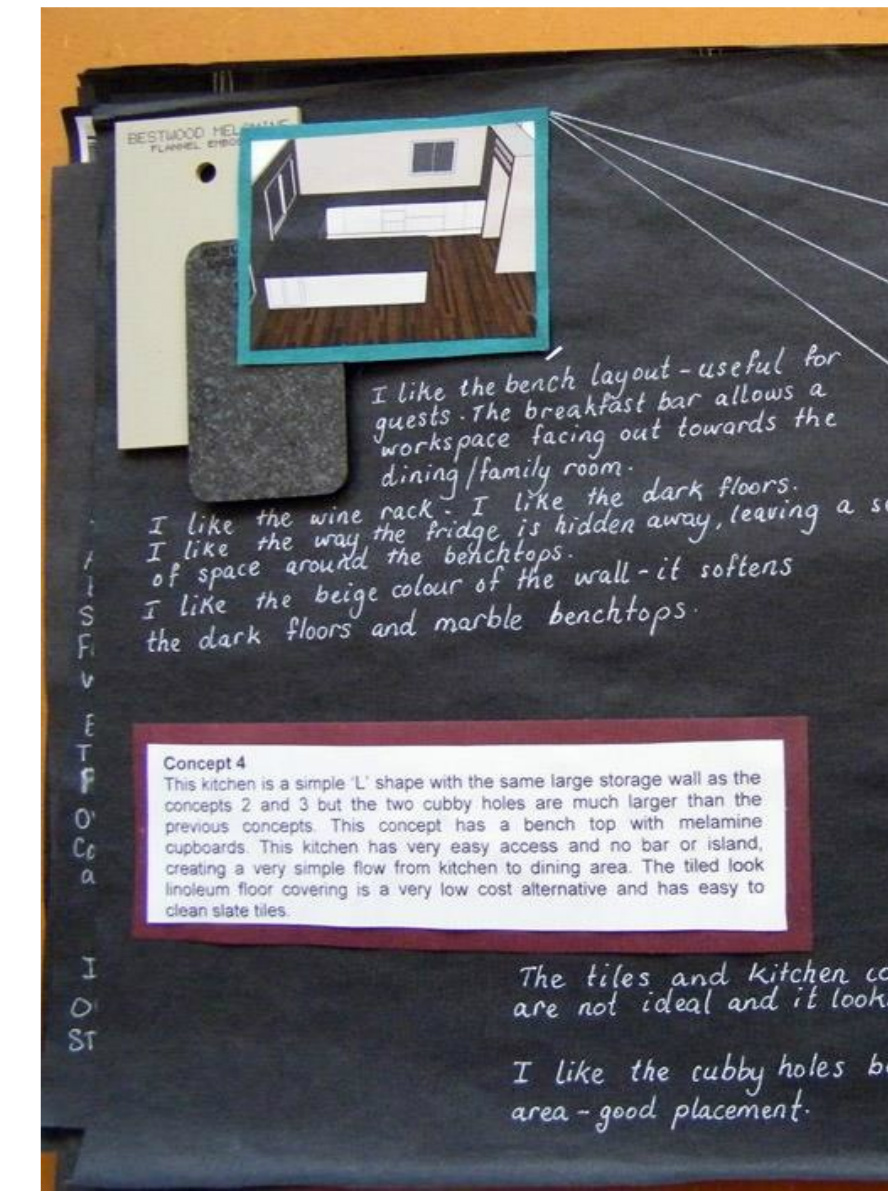 BESTWOOD
I like the bench layout - useful for
guests. The breakfast bar allows a
workspace facing out towards the
dining/family room.
I like the wine rack. I like the dark floors.
I like the way the fridge is hidden away, leaving a
of space around the benchtops.
I like the beige colour of the wall - it softens
the dark floors and marble benchtops.
Concept 4
This kitchen is a simple 'L' shape with the same large storage wall as the
concepts 2 and 3 but the two cubby holes are much larger than the
previous concepts. This concept has a bench top with melamine
cupboards. This kitchen has very easy access and no bar or island,
creating a very simple flow from kitchen to dining area. The tiled look
linoleum floor covering is a very low cost alternative and has easy to
clean slate tiles.
The tiles and kitchen
are not ideal and it
I like the cubby holes
area - good placement.